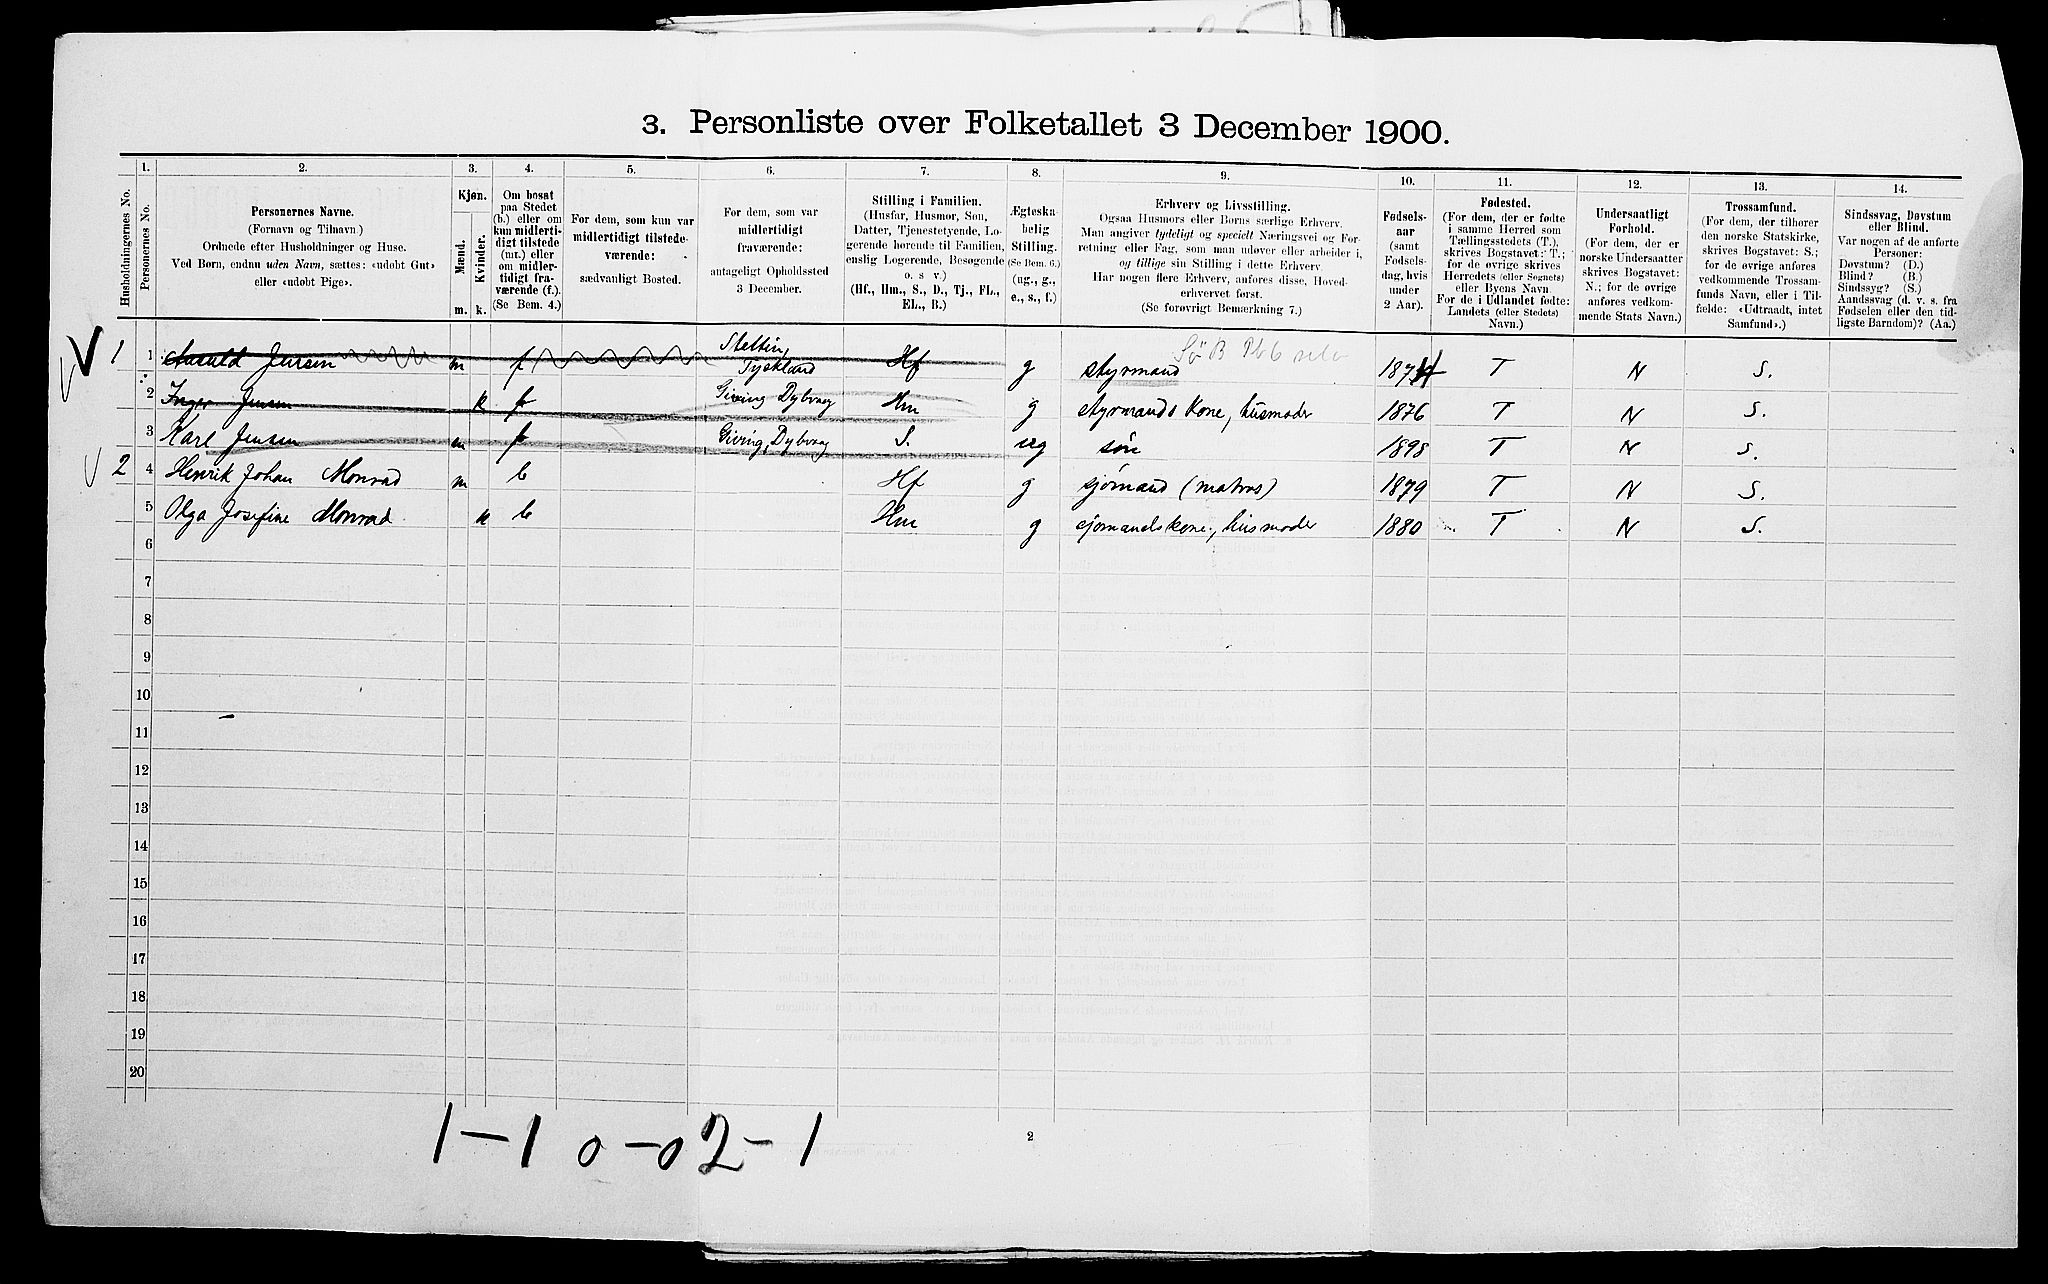 3. Personliste over Folketallet 3 December 1900.
1. 2. 3. 4. 5. 6. 7. 8. 9. 10. 11. 12. 13. 14.
Husholdningernes No.
Personernes No.
Personernes Navne.
(Fornavn og Tilnavn.)
Ordnede efter Husholdninger og Huse.
Ved Børn, endnu uden Navn, sættes: «udøbt Gut»
eller «udøbt Pige».
Kjøn.
Mænd.
Kvinder.
m. k.
Om bosat
paa Stedet
(b.) eller om
kun midlerti-
digt tilstede
(mt.) eller
om midler-
tidigt fra-
værende (f.).
(Se Bem. 4.)
For dem, som kun var
midlertidigt tilstede-
værende:
sædvanligt Bosted.
For dem, som var
midlertidigt
fraværende:
antageligt Opholdssted
3 December.
Stilling i Familien.
(Husfar, Husmor, Søn,
Datter, Tjenestetyende, Lo-
gerende hørende til Familien,
enslig Logerende, Besøgende
o. s v.)
(Hf., Hm., S., D., Tj., FL.,
EL., B.)
Ægteska-
belig
Stilling.
(Se Bem. 6.)
(ug., g.,
e., s., f.)
Erhverv og Livsstilling.
Ogsaa Husmors eller Børns særlige Erhverv.
Man angiver tydeligt og specielt Næringsvei og For-
retning eller Fag, som man udøver eller arbeider i,
og tillige sin Stilling i dette Erhverv.
Har nogen flere Erhverv, anføres disse, Hoved-
erhvervet først.
(Se forøvrigt Bemærkning 7.)
Fødsels-
aar
(samt
Fødsels-
dag, hvis
under
2 Aar).
Fødested.
(For dem, der er fødte
i samme Herred som
Tællingsstedets (T.),
skrives Bogstavet: T.;
for de øvrige skrives
Herredets (eller Sognets)
eller Byens Navn.
For de i Udlandet fødte:
Landets (eller Stedets)
Navn.)
Undersaatligt
Forhold.
(For dem, der er
norske Undersaatter
skrives Bogstavet:
N.; for de øvrige
anføres vedkom-
mende Stats Navn.)
Trossamfund.
(For dem, der tilhører
den norske Statskirke,
skrives Bogstavet: S.;
for de øvrige anføres
vedkommende Trossam-
funds Navn, eller i Til-
fælde: «Udtraadt, intet
Samfund».)
Sindssvag, Døvstum
eller Blind.
Var nogen af de anførte
Personer:
Døvstum? (D.)
Blind? (B.)
Sindssyg? (S.)
Aandssvag (d. v. s. fra
Fødselen eller den tid-
ligste Barndom)? (Aa.)
1 1 Jensen m f Stettin, Tyskland Hf g styrmand 187 T N S.
2 Inger Jensen k f Giving Dybvaag Hm g styrmands kone, husmoder 1876 T N S.
3 Karl Jensen m f Giving, Dybvaag S. ug søn 1898 T N S.
2 4 Henrik Johan Monrad m b Hf g sjømand (matros) 1879 T N S.
5 Olga Josefine Monrad k b Hm g sjømandskone, husmoder 1880 T N S.
6
7
8
9
10
11
12
13
14
15
16
17
18
19
20
1-1 0-0 2-1
2